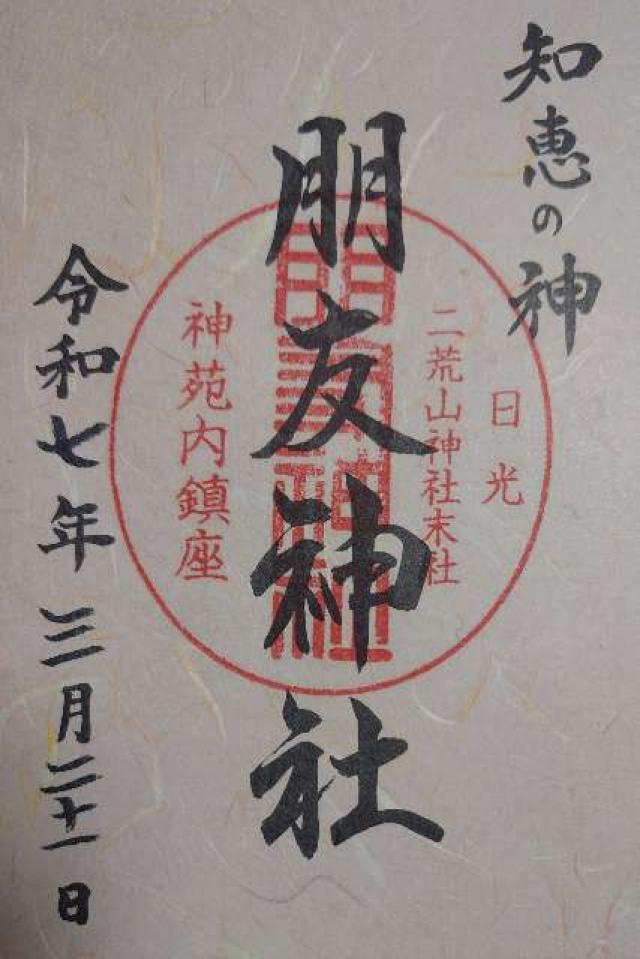 知恵の神
日光
二荒山神社末社
朋友神社
神苑内鎮座
令和七年三月二十一日